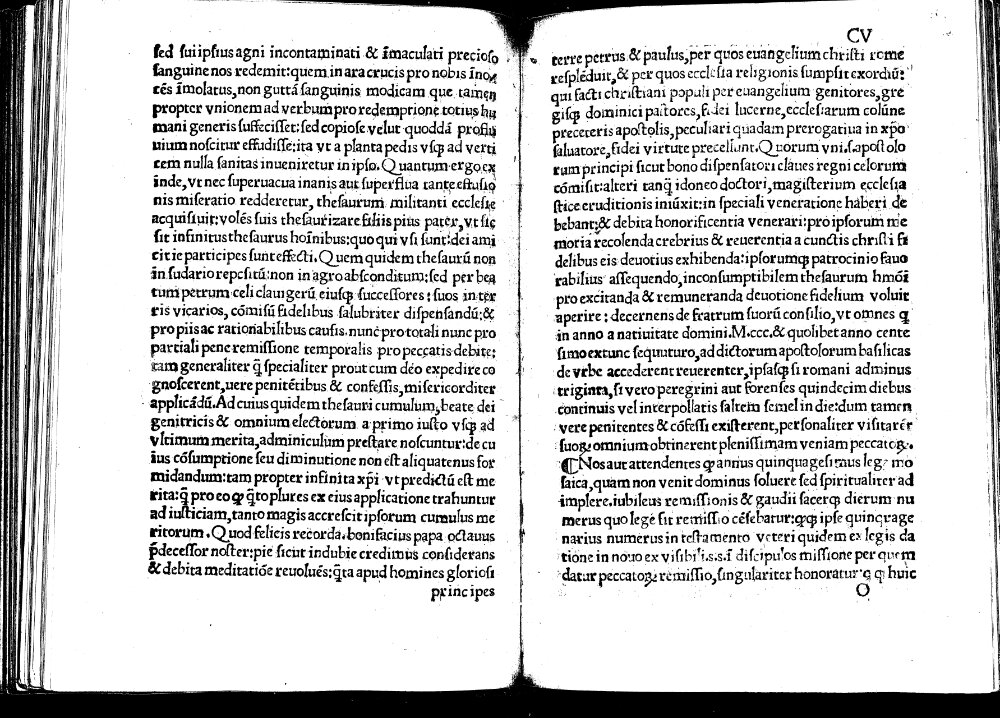 sed sui ipsius agni incontaminati & īmaculati precioso
sanguine nos redemit: quem in ara crucis pro nobis īno
cēs īmolatus, non guttā sanguinis modicam que tamen
propter vnionem ad verbum pro redemptione totius hu
mani generis suffecisset: sed copiose velut quoddā profiu
uium noscitur effudisse: ita vt a planta pedis vsq; ad verti
cem nulla sanitas inueniretur in ipso. Quantum ergo ex
inde, vt nec superuacua inanis aut superflua tante effusio
nis miseratio redderetur, thesaurum militanti ecclesie
acquisiuit: volēs suis thesaurizare filiis pius pater, vt sic
sit infinitus thesaurus hoīnibus: quo qui vsi sunt: dei ami
citie participes sunt effecti. Quem quidem thesaurū non
in sudario repositū: non in agro absconditum: sed per bea
tum petrum celi clauigerū eiusq; successores: suos in ter
ris vicarios, cōmisū fidelibus salubriter dispensandū: &
pro piis ac rationabilibus causis. nunc pro totali nunc pro
partiali pene remissione temporalis pro peccatis debite:
tam generaliter q̄ specialiter prout cum deo expedire co
gnoscerent, uere penitētibus & confessis, misericorditer
applicādū. Ad cuius quidem thesauri cumulum, beate dei
genitricis & omnium electorum a primo iusto vsq; ad
vltimum merita, adminiculum prestare noscuntur: de cu
ius cōsumptione seu diminutione non est aliquatenus for
midandum: tam propter infinita xp̄i vt predictū est me
rita: q̄ pro eo ꝙ q̄to plures ex eius applicatione trahuntur
ad iusticiam, tanto magis accrescit ipsorum cumulus me
ritorum. Quod felicis recorda. bonifacius papa octauus
p̄decessor noster: pie sicut indubie credimus considerans
& debita meditatiōe reuoluēs: q̄ta apud homines gloriosi
principes
CV
terre petrus & paulus, per quos euangelium christi rome
resplēduit, & per quos ecclesia religionis sumpsit exordiū:
qui facti christiani populi per euangelium genitores, gre
gisq; dominici pastores, fidei lucerne, ecclesiarum colūne
preceteris apostolis, peculiari quadam prerogatiua in xp̄o
saluatore, fidei virtute precellunt. Quorum vni .s. apostolo
rum principi sicut bono dispensatori claues regni celorum
cōmisit: alteri tanq̄ idoneo doctori, magisterium ecclesia
stice eruditionis iniūxit: in speciali veneratione haberi de
bebant: & debita honorificentia venerari: pro ipsorum me
moria recolenda crebrius & reuerentia a cunctis christi fi
delibus eis deuotius exhibenda: ipsorumq; patrocinio fauo
rabilius assequendo, inconsumptibilem thesaurum hmōi
pro excitanda & remuneranda deuotione fidelium voluit
aperire: decernens de fratrum suorū consilio, vt omnes q
in anno a natiuitate domini. M.ccc, & quolibet anno cente
simo extunc sequuturo, ad dictorum apostolorum basilicas
de vrbe accederent reuerenter, ipsasq; si romani adminus
triginta, si vero peregrini aut forenses quindecim diebus
continuis vel interpollatis saltem semel in die: dum tamen
vere penitentes & cōfessi existerent, personaliter visitarēt
suoꝝ omnium obtinerent plenissimam veniam peccatoꝝ.
¶Nos aut attendentes ꝙ annus quinquagesimus lege mo
saica, quam non venit dominus soluere sed spiritualiter ad
implere. iubileus remissionis & gaudii sacerq; dierum nu
merus quo lege sit remissio cēsebatur: ipse quinquage
narius numerus in testamento veteri quidem ex legis da
tione in nouo ex visibili .s.s. ī discipulos missione per quem
datur peccatoꝝ remissio, singulariter honoratur huic
O